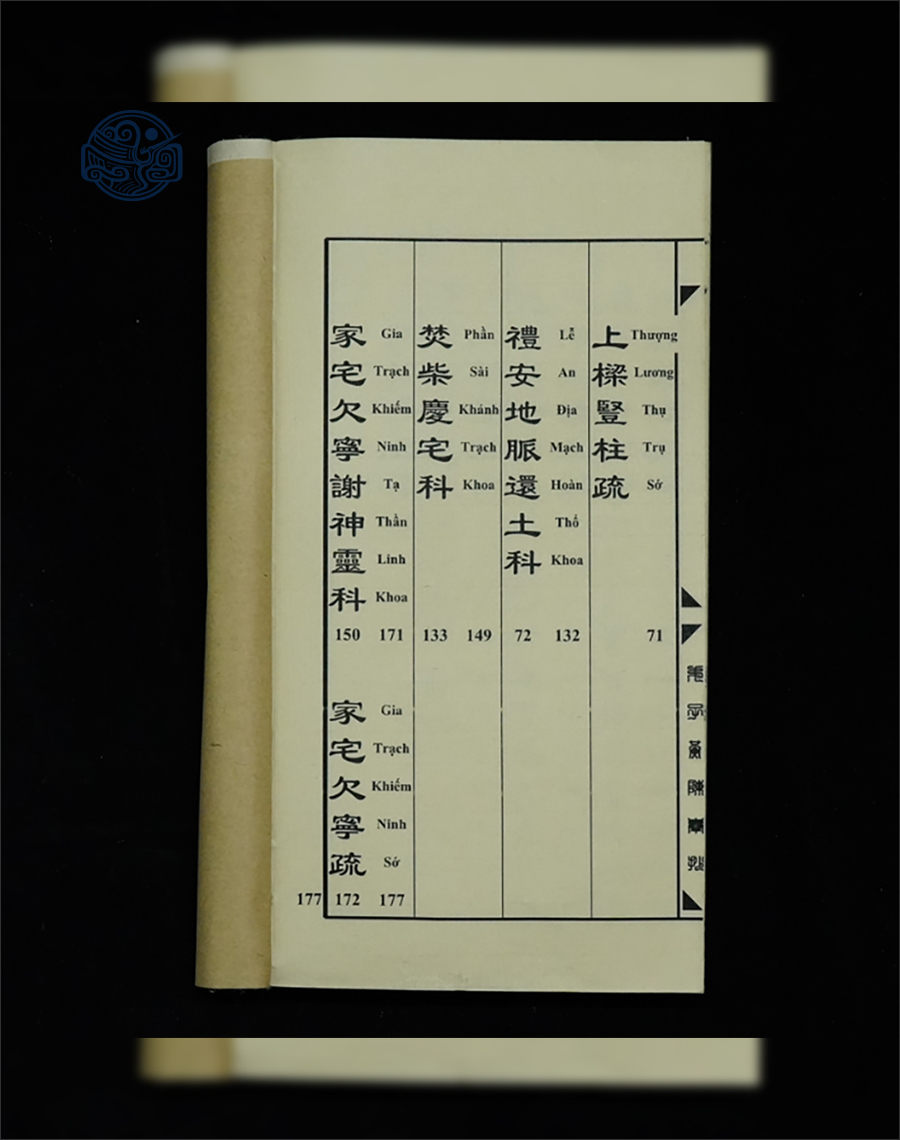 上樑豎柱疏
Thượng Lương Thụ Trụ Sớ
71
禮安地脈還土科
Lễ An Địa Mạch Hoàn Thổ Khoa
72 132
焚柴慶宅科
Phần Sài Khánh Trạch Khoa
133 149
家宅欠寧謝神靈科
Gia Trạch Khiếm Ninh Tạ Thần Linh Khoa
150 171
家宅欠寧疏
Gia Trạch Khiếm Ninh Sớ
172 177
177